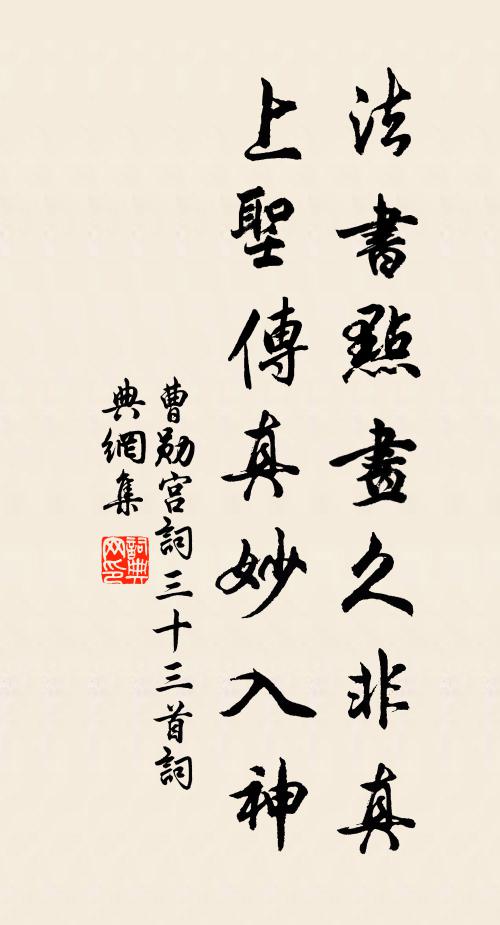 法書點畫久非真
上聖傳真妙入神
曹勛宮詞三十三首詞
典網集
詞典網印